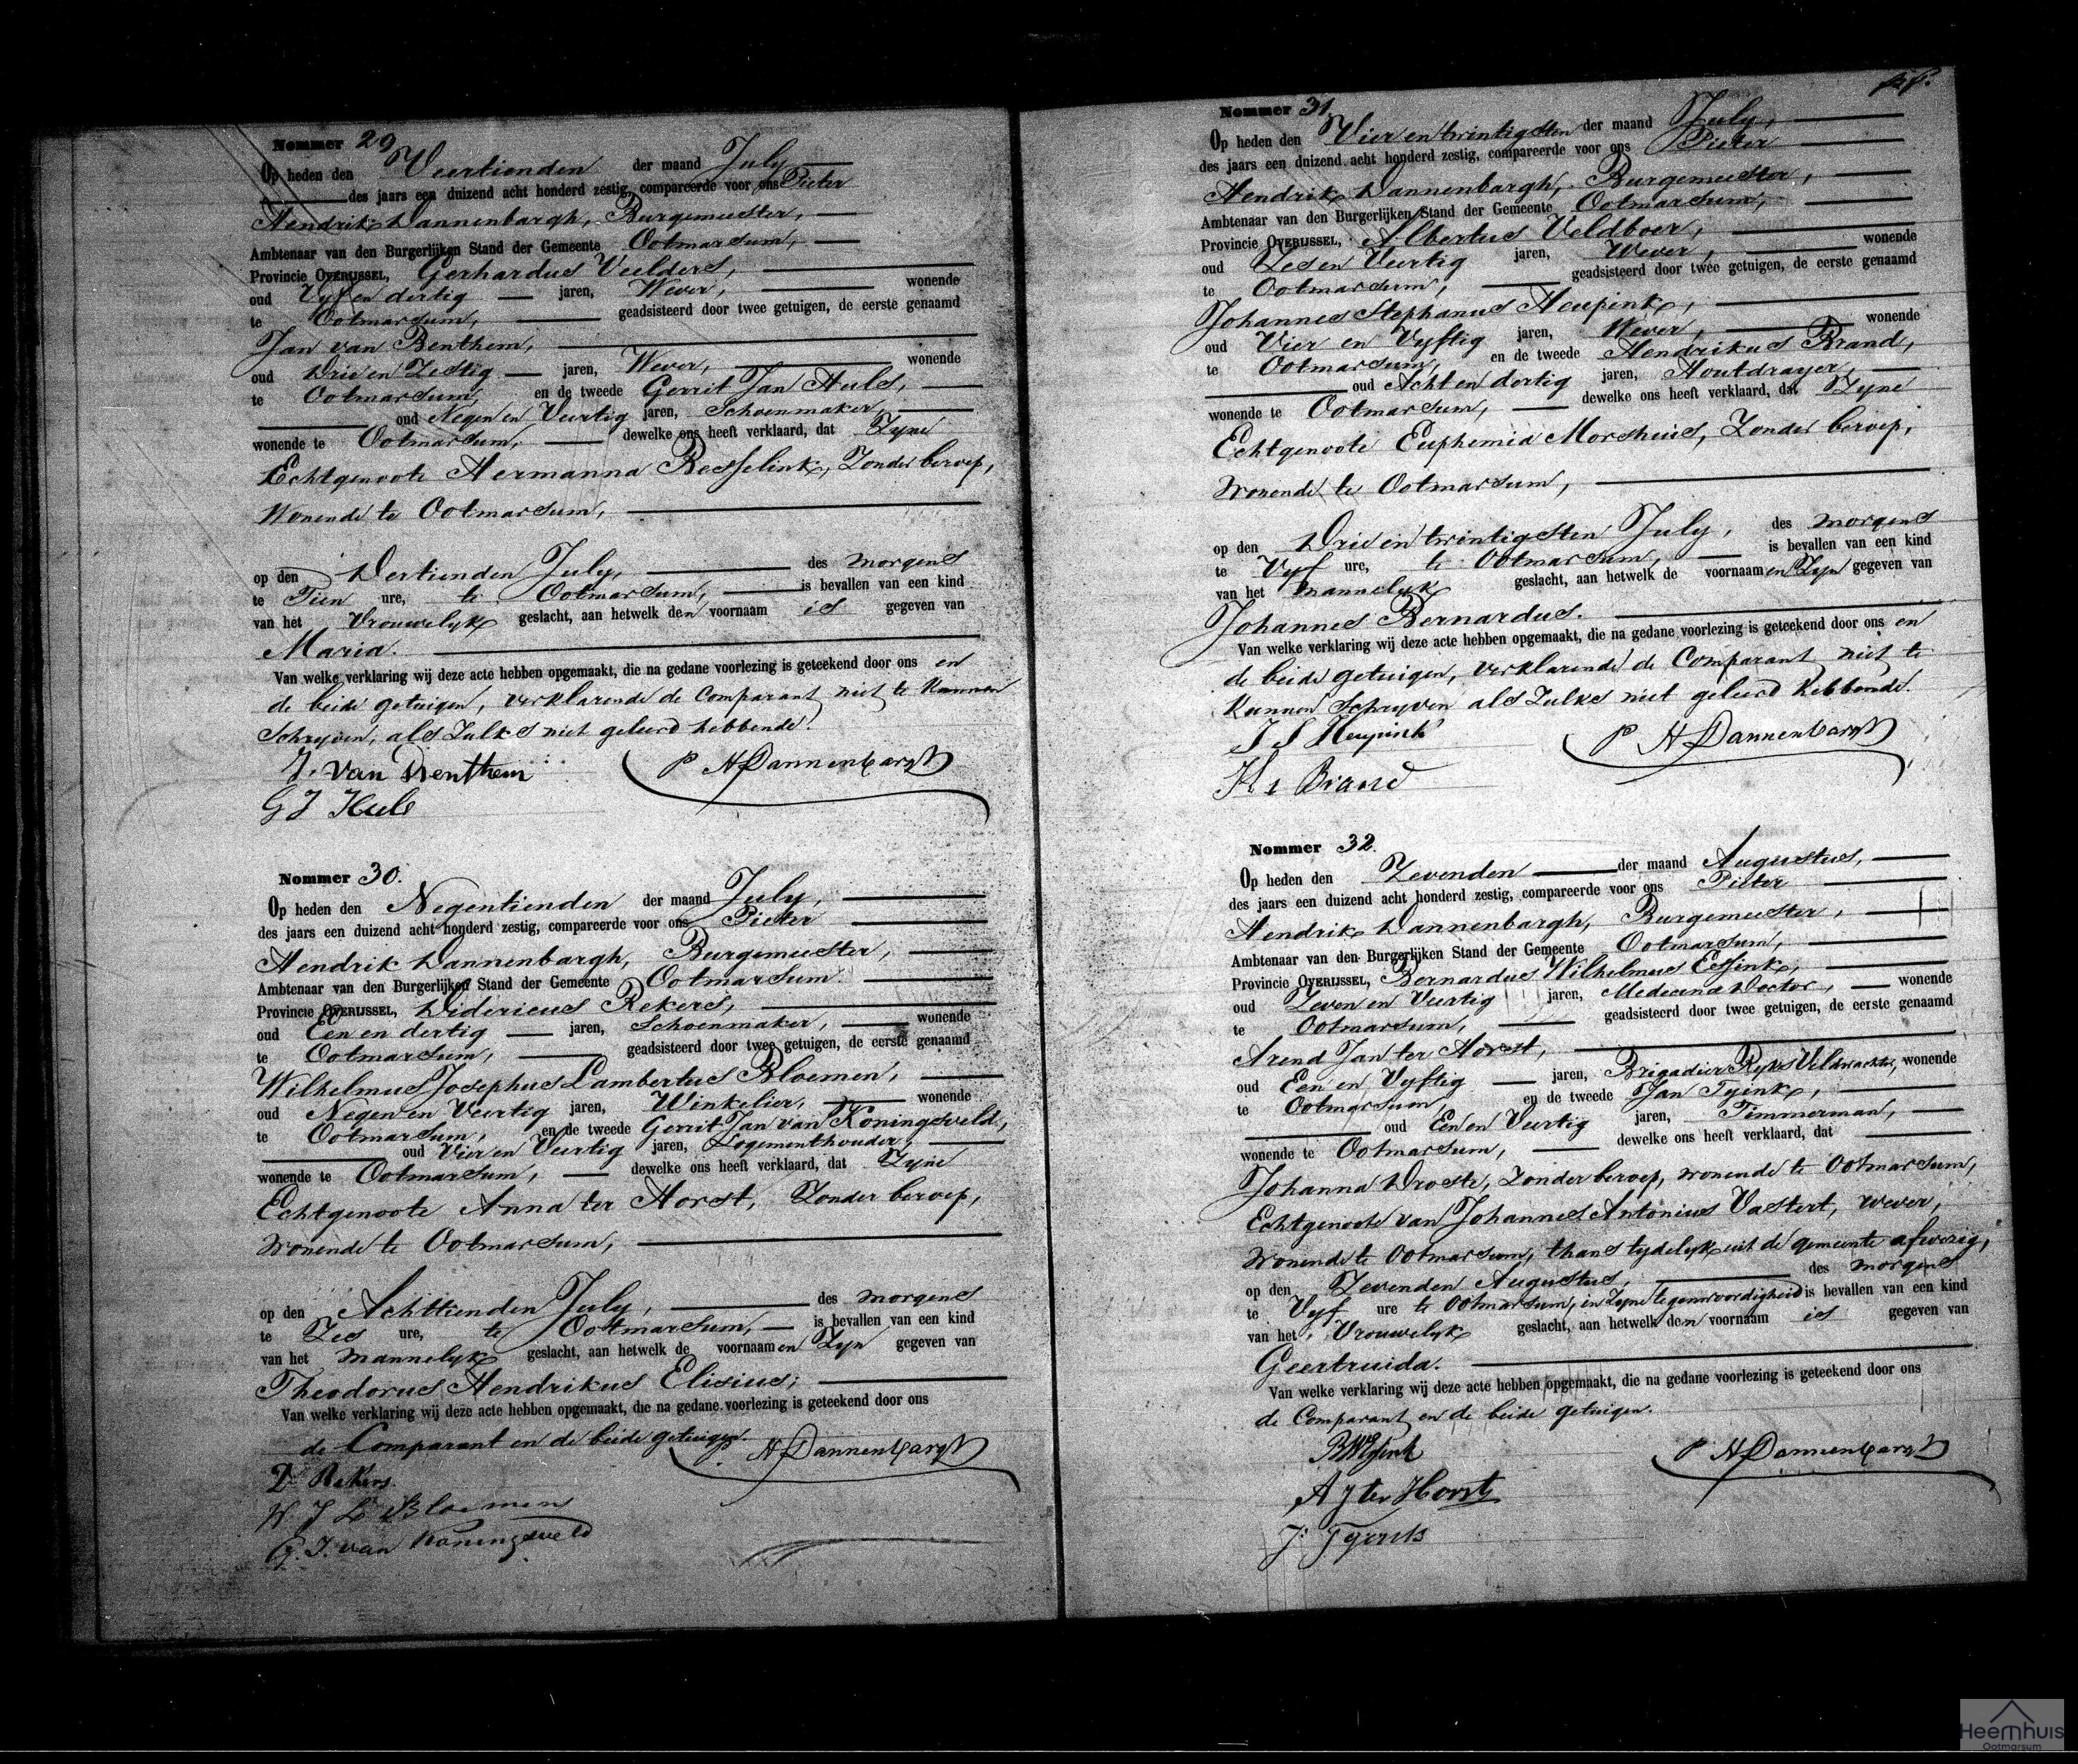 Nommer 29
Op heden den Veertienden der maand July
des jaars een duizend acht honderd zestig, compareerde voor ons Pieter
Hendrik Dannenbargh, Burgemeester,
Ambtenaar van den Burgerlijken Stand der Gemeente Ootmarsum,
Provincie OVERIJSSEL, Gerhardus Veelders,
oud Vyf en dertig jaren, Wever, wonende
te Ootmarsum, geadsisteerd door twee getuigen, de eerste genaamd
Jan van Benthem,
oud Drie en Zestig jaren, Wever, wonende
te Ootmarsum, en de tweede Gerrit Jan Huls,
oud Negen en Veertig jaren, Schoenmaker,
wonende te Ootmarsum, dewelke ons heeft verklaard, dat Zyne
Echtgenoote Hermanna Besselink, Zonder beroep,
Wonende te Ootmarsum,
op den Dertienden July, des morgens
te Tien ure, te Ootmarsum, is bevallen van een kind
van het Vrouwelyk geslacht, aan hetwelk den voornaam is gegeven van
Maria.
Van welke verklaring wij deze acte hebben opgemaakt, die na gedane voorlezing is geteekend door ons en
de beide getuigen, verklarende de Comparant niet te Kunnen
Schryven, als Zulks niet geleerd hebbende.
J. van Benthem P H Dannenbargh
G J Huls
Nommer 30.
Op heden den Negentienden der maand July,
des jaars een duizend acht honderd zestig, compareerde voor ons Pieter
Hendrik Dannenbargh, Burgemeester,
Ambtenaar van den Burgerlijken Stand der Gemeente Ootmarsum.
Provincie OVERIJSSEL, Didericus Rekers,
oud Een en dertig jaren, Schoenmaker, wonende
te Ootmarsum, geadsisteerd door twee getuigen, de eerste genaamd
Wilhelmus Josephus Lambertus Bloemen,
oud Negen en Veertig jaren, Winkelier, wonende
te Ootmarsum, en de tweede Gerrit Jan van Koningsveld,
oud Vier en Veertig jaren, Logementhouder,
wonende te Ootmarsum, dewelke ons heeft verklaard, dat Zyne
Echtgenoote Anna ter Horst, Zonder beroep,
Wonende te Ootmarsum,
op den Achttienden July, des morgens
te Zes ure, te Ootmarsum, is bevallen van een kind
van het mannelyk geslacht, aan hetwelk de voornaamen Zyn gegeven van
Theodorus Hendrikus Elisius;
Van welke verklaring wij deze acte hebben opgemaakt, die na gedane voorlezing is geteekend door ons
de Comparant en de beide getuigen.
P. H Dannenbargh
D Rekers.
W. J L Bloemen
G. J. van Koningsveld
Nommer 31
Op heden den Vier en twintigsten der maand July,
des jaars een duizend acht honderd zestig, compareerde voor ons Pieter
Hendrik Dannenbargh, Burgemeester,
Ambtenaar van den Burgerlijken Stand der Gemeente Ootmarsum,
Provincie OVERIJSSEL, Albertus Veldboer,
oud Zes en Veertig jaren, Wever, wonende
te Ootmarsum, geadsisteerd door twee getuigen, de eerste genaamd
Johannes Stephanus Heupink,
oud Vier en Vyftig jaren, Wever, wonende
te Ootmarsum, en de tweede Hendrikus Brand,
oud Acht en dertig jaren, Houtdrayer,
wonende te Ootmarsum, dewelke ons heeft verklaard, dat Zyne
Echtgenoote Euphemia Morsheus, Zonder beroep,
Wonende te Ootmarsum,
op den Drie en twintigsten July, des morgens
te Vyf ure, te Ootmarsum, is bevallen van een kind
van het mannelyk geslacht, aan hetwelk de voornaamen Zyn gegeven van
Johannes Bernardus.
Van welke verklaring wij deze acte hebben opgemaakt, die na gedane voorlezing is geteekend door ons en
de beide getuigen, verklarende de Comparant niet te
Kunnen Schryven als Zulks niet geleerd hebbende.
J S Heupink P H Dannenbargh
Hs Brand
Nommer 32.
Op heden den Zevenden der maand Augustus,
des jaars een duizend acht honderd zestig, compareerde voor ons Pieter
Hendrik Dannenbargh, Burgemeester,
Ambtenaar van den Burgerlijken Stand der Gemeente Ootmarsum,
Provincie OVERIJSSEL, Bernardus Wilhelmus Essink,
oud Zeven en Veertig jaren, Medicina Doctor, wonende
te Ootmarsum, geadsisteerd door twee getuigen, de eerste genaamd
Arend Jan ter Horst,
oud Een en Vyftig jaren, Brigadier Ryks Veldwachter, wonende
te Ootmarsum, en de tweede Jan Tyink,
oud Een en Veertig jaren, Timmerman,
wonende te Ootmarsum, dewelke ons heeft verklaard, dat
Johanna Droste, Zonder beroep, wonende te Ootmarsum,
Echtgenoote van Johannes Antonius Vastert, wever,
Wonende te Ootmarsum, thans tydelyk uit de gemeente afwezig,
op den Zevenden Augustus, des morgens
te Vyf ure te Ootmarsum, in Zyne tegenwoordigheid is bevallen van een kind
van het Vrouwelyk geslacht, aan hetwelk den voornaam is gegeven van
Geertruida.
Van welke verklaring wij deze acte hebben opgemaakt, die na gedane voorlezing is geteekend door ons
de Comparant en de beide getuigen.
P H Dannenbargh
A J ter Horst
J. Tyink
Heemhuis
Ootmarsum